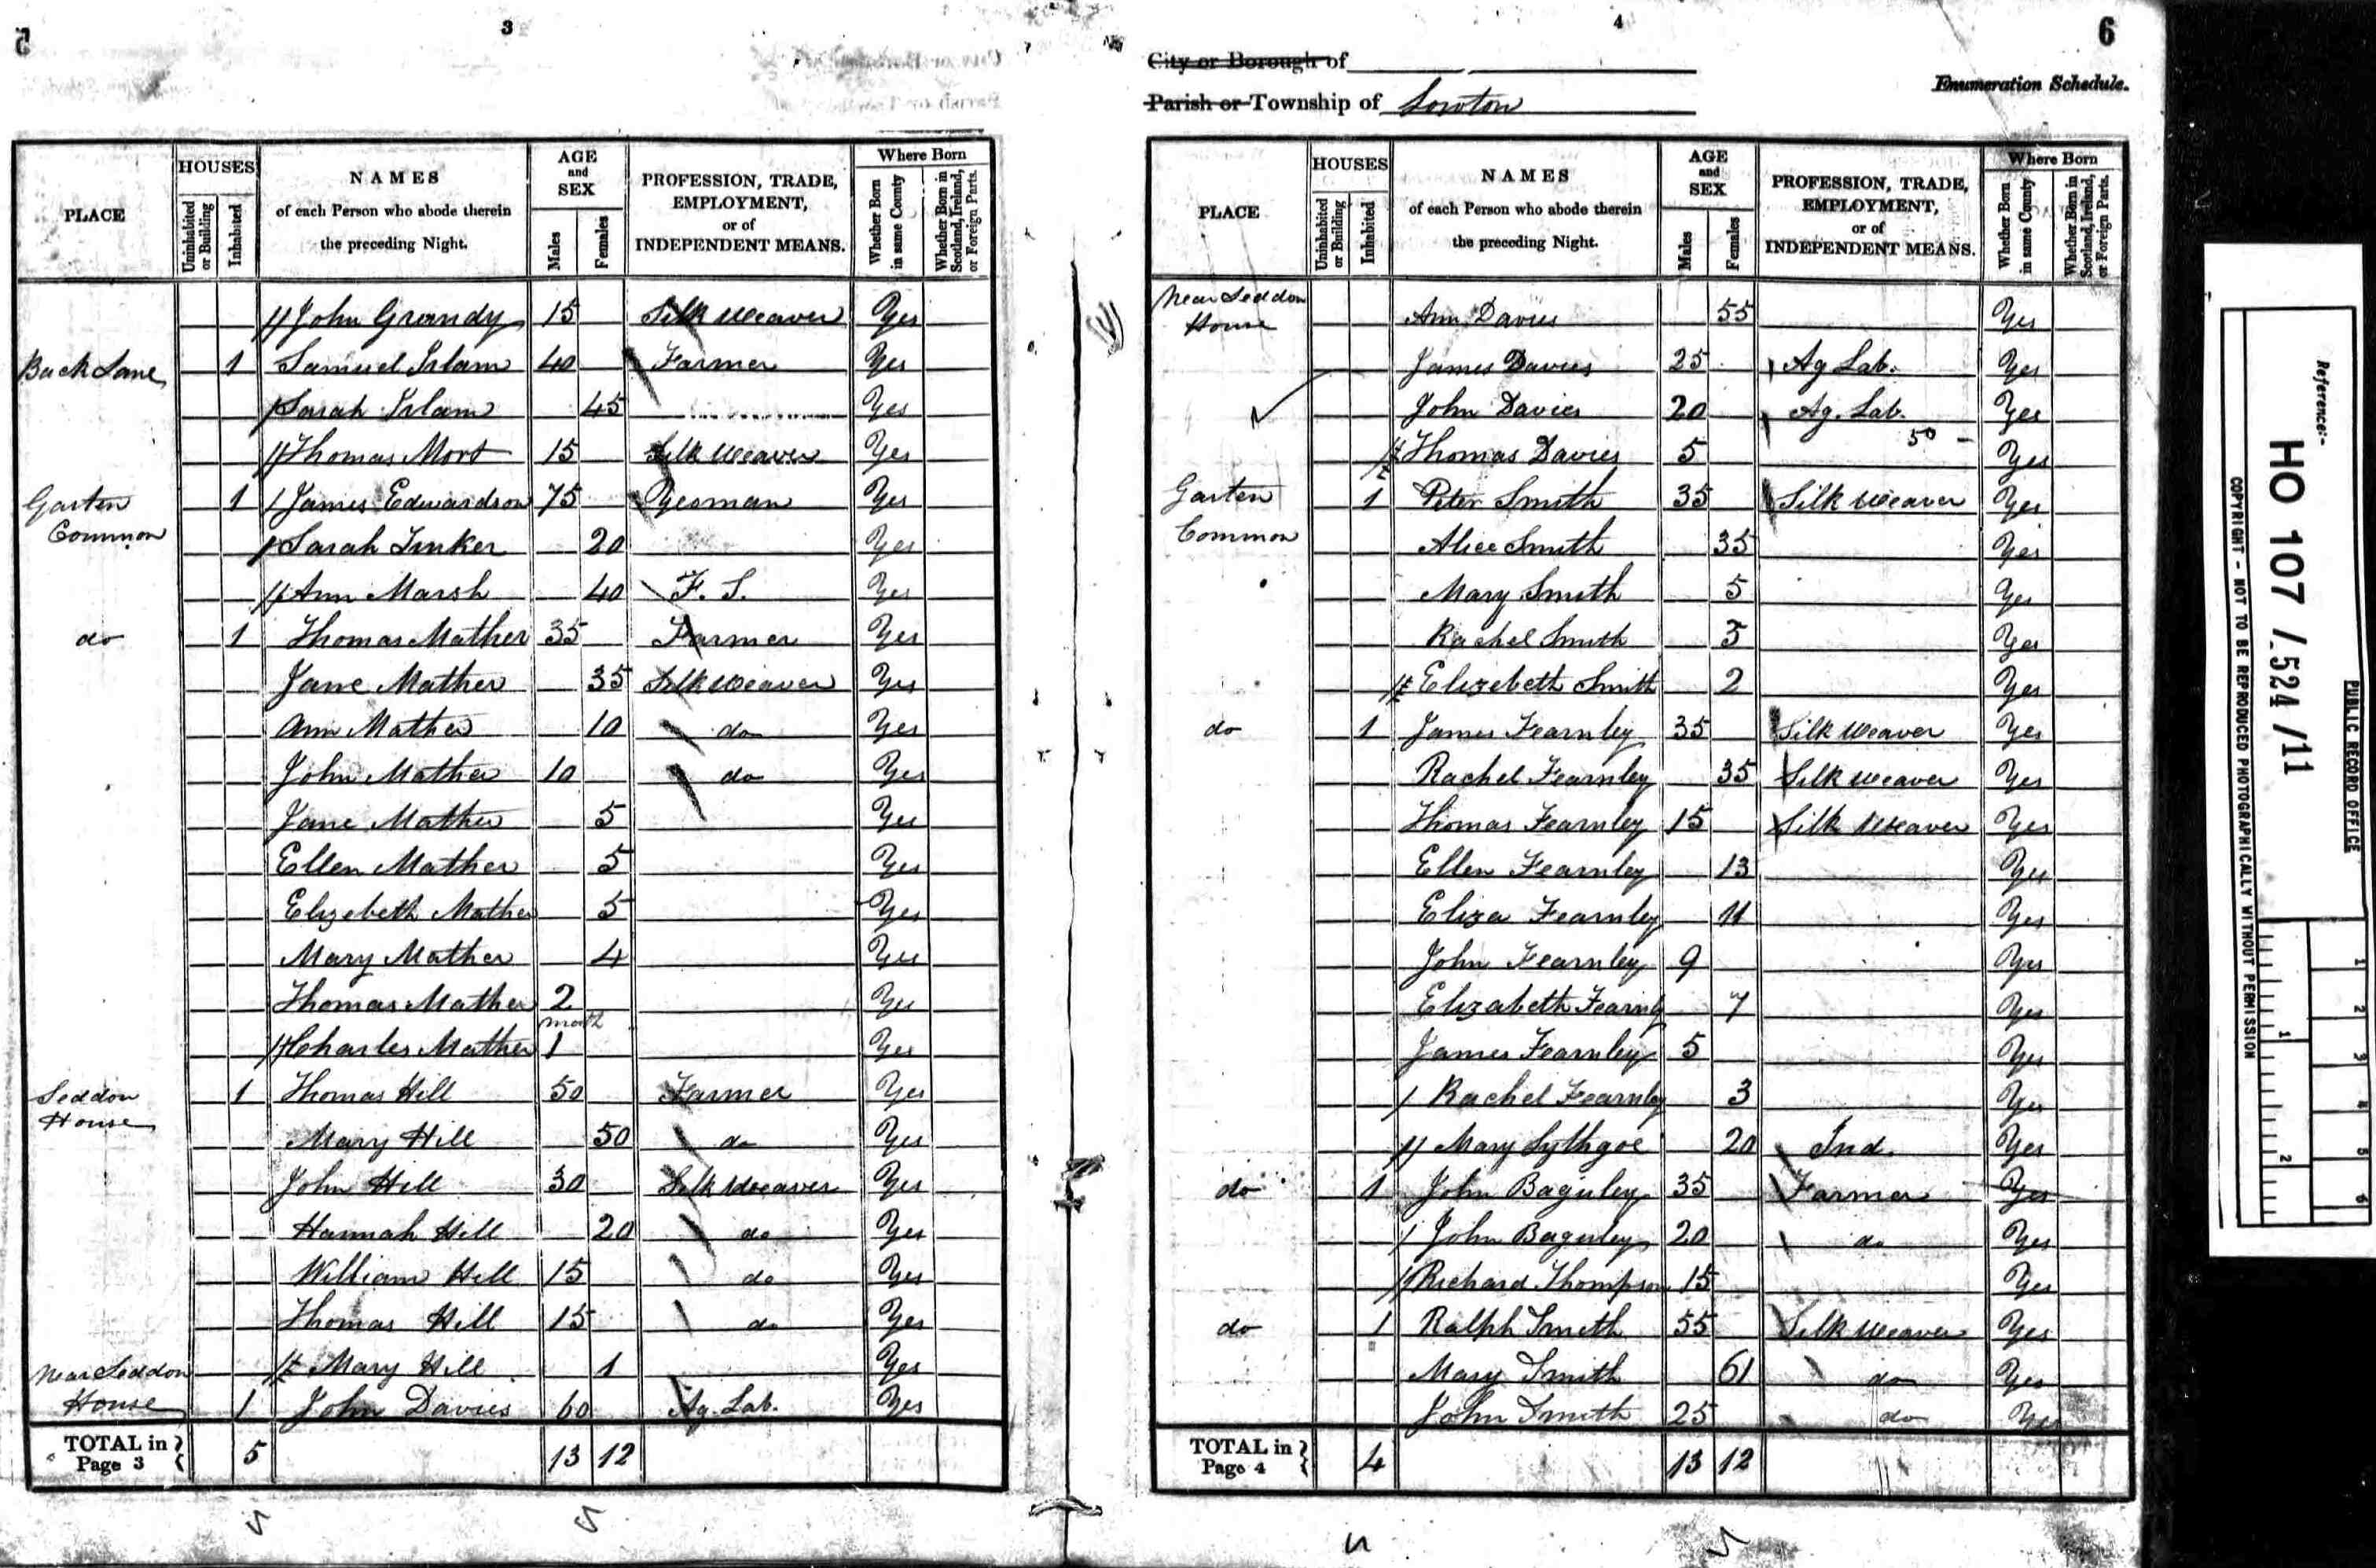 3
5
PLACE HOUSES NAMES of each Person who abode therein the preceding Night. AGE and SEX PROFESSION, TRADE, EMPLOYMENT, or of INDEPENDENT MEANS. Where Born
Uninhabited or Building Inhabited Males Females Whether Born in same County Whether Born in Scotland, Ireland, or Foreign Parts.
John Grundy 15 Silk Weaver Yes
Back Lane 1 Samuel Irlam 40 Farmer Yes
Sarah Irlam 45 Yes
Thomas Mort 15 Silk Weaver Yes
Garten 1 James Edwardson 75 Yeoman Yes
Common Sarah Tinker 20 Yes
Ann Marsh 40 F. S. Yes
do 1 Thomas Mather 35 Farmer Yes
Jane Mather 35 Silk Weaver Yes
Ann Mather 10 do Yes
John Mather 10 do Yes
Jane Mather 5 Yes
Ellen Mather 5 Yes
Elizebeth Mather 5 Yes
Mary Mather 4 Yes
Thomas Mather 2 Yes
month
Charles Mather 1 Yes
Seddon 1 Thomas Hill 50 Farmer Yes
House Mary Hill 50 do Yes
John Hill 30 Silk Weaver Yes
Hannah Hill 20 do Yes
William Hill 15 do Yes
Thomas Hill 15 do Yes
Near Seddon Mary Hill 1 Yes
House 1 John Davies 60 Ag. Lab. Yes
TOTAL in Page 3 5 13 12
4
6
City or Borough of
Parish or Township of Lowton
Enumeration Schedule.
PLACE HOUSES NAMES of each Person who abode therein the preceding Night. AGE and SEX PROFESSION, TRADE, EMPLOYMENT, or of INDEPENDENT MEANS. Where Born
Uninhabited or Building Inhabited Males Females Whether Born in same County Whether Born in Scotland, Ireland, or Foreign Parts.
Near Seddon
House Ann Davies 55 Yes
James Davies 25 Ag Lab. Yes
John Davies 20 Ag. Lab. Yes
50
Thomas Davies 5 Yes
Garten 1 Peter Smith 35 Silk Weaver Yes
Common Alice Smith 35 Yes
Mary Smith 5 Yes
Rachel Smith 5 Yes
Elizebeth Smith 2 Yes
do 1 James Fearnley 35 Silk Weaver Yes
Rachel Fearnley 35 Silk Weaver Yes
Thomas Fearnley 15 Silk Weaver Yes
Ellen Fearnley 13 Yes
Eliza Fearnley 11 Yes
John Fearnley 9 Yes
Elizabeth Fearnly 7 Yes
James Fearnley 5 Yes
Rachel Fearnley 3 Yes
Mary Lythgoe 20 Ind. Yes
do 1 John Baguley 35 Farmer Yes
John Baguley 20 do Yes
Richard Thompson 15 Yes
do 1 Ralph Smith 55 Silk Weaver Yes
Mary Smith 61 do Yes
John Smith 25 do Yes
TOTAL in Page 4 4 13 12
PUBLIC RECORD OFFICE
Reference:-
HO 107 / 524 / 11
COPYRIGHT - NOT TO BE REPRODUCED PHOTOGRAPHICALLY WITHOUT PERMISSION
1 2 3 4 5 6
1 2